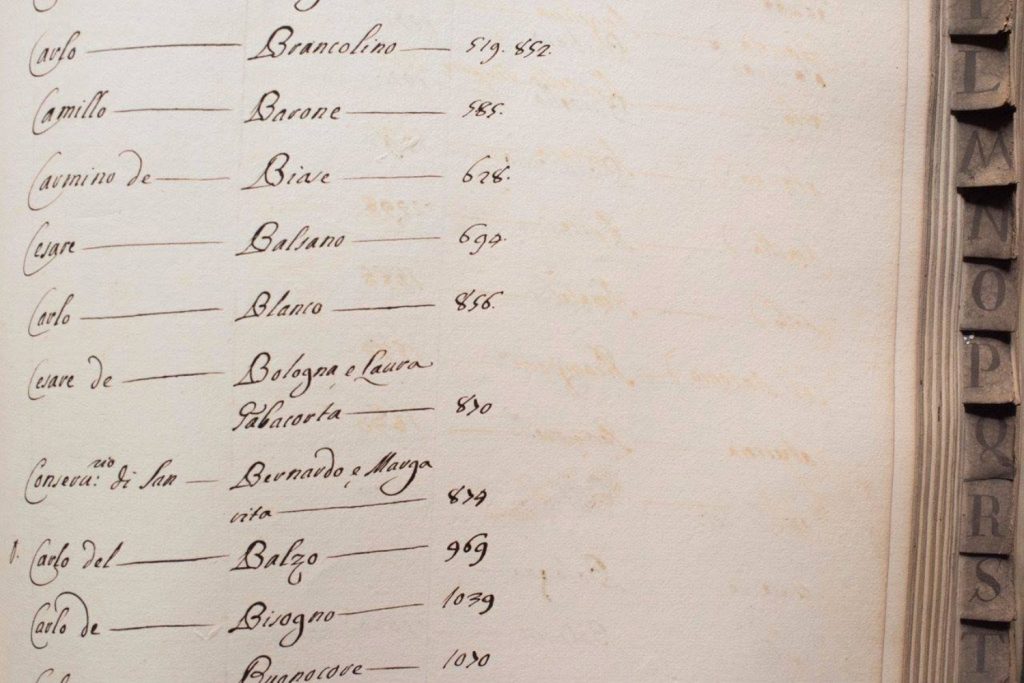 Carlo Brancolino 519. 852.
Camillo Barone 585.
Carmino de Biase 628.
Cesare Balsano 694.
Carlo Blanco 856.
Cesare de Bologna, e Laura
Tabacorta 870
Conserva:rio di San Bernardo, e Marga
rita 874
Carlo del Balzo 969
Carlo de Bisogno 1039
Buonocore 1070
L
M
N
O
P
Q
R
S
T